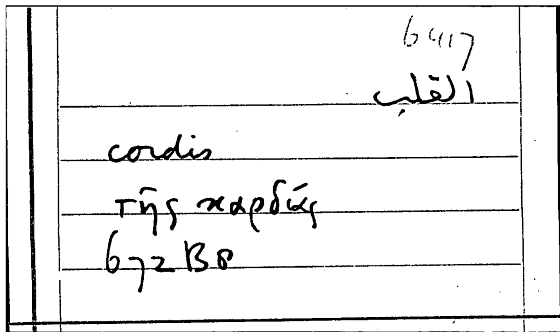 6417
القلب
cordis
τῆς καρδίας
672 B 8